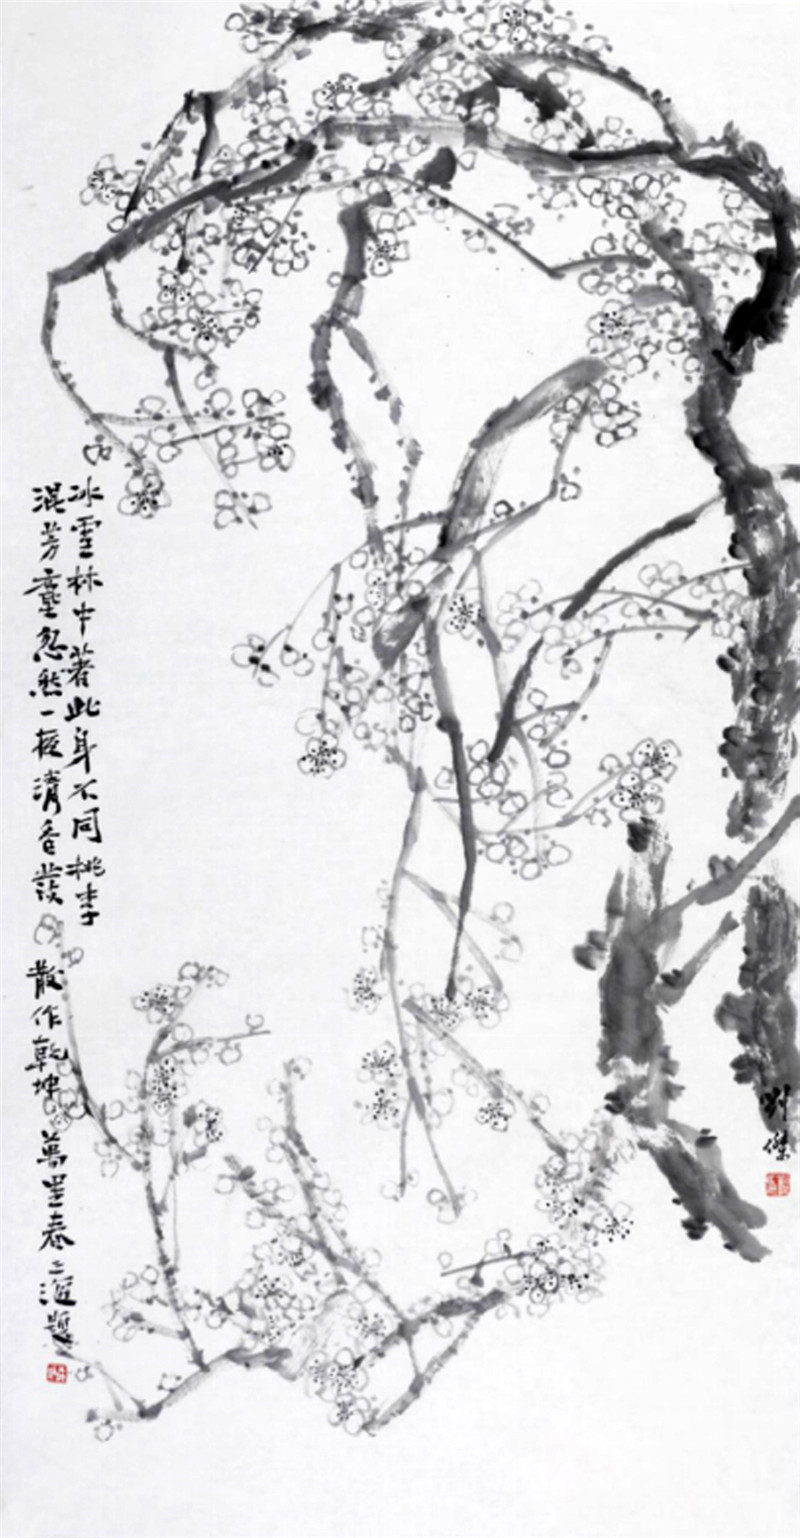 冰雪林中著此身不同桃李
混芳塵忽然一夜清香發散作乾坤萬里春二
劉傑